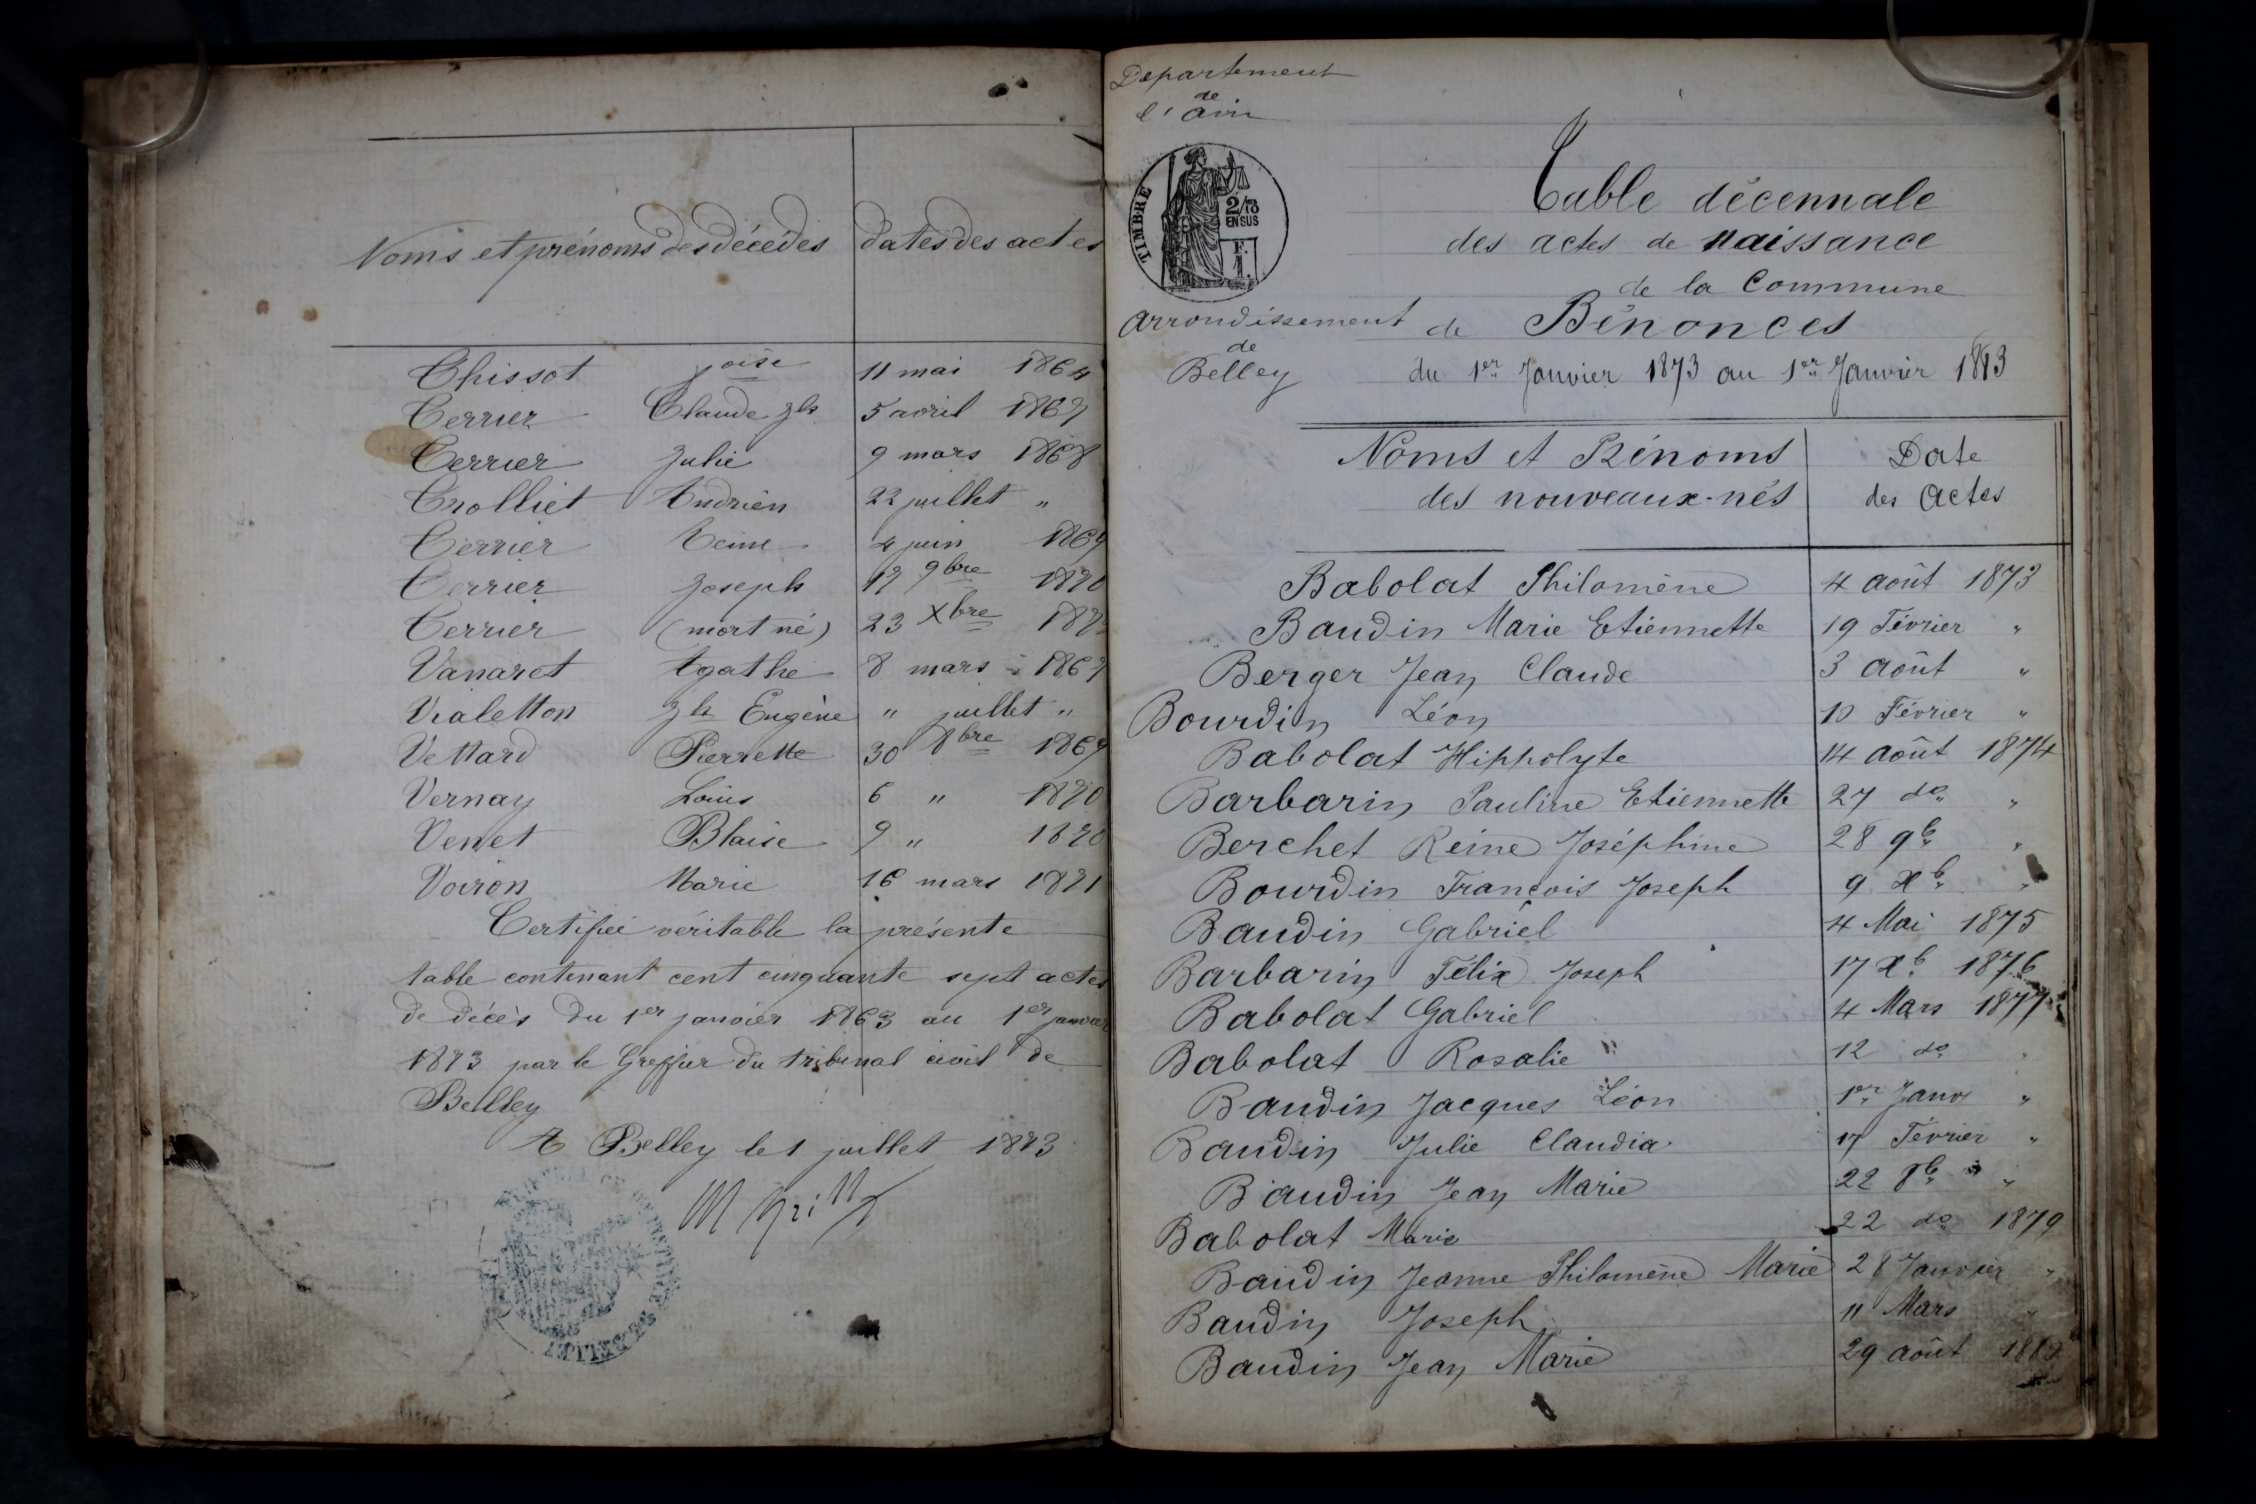 Noms et prénoms des décédés dates des actes
Thissot joise 11 mai 1864
Terrier Claude jh 5 avril 1867
Terrier Julie 9 mars 1868
Trolliet Andrien 22 juillet "
Terrier Reine 4 juin 1869
Terrier Joseph 17 9bre 1870
Terrier (mort né) 23 Xbre 187
Vanaret Agathe 8 mars 1867
Vialetton jh Eugène " juillet "
Vettard Pierrette 30 8bre 1869
Vernay Louis 6 " 1870
Venet Blaise 9 " 1870
Voiron Marie 16 mars 1871
Certifiée véritable la présente
table contenant cent cinquante sept actes
de décès du 1er janvier 1863 au 1er janvier
1873 par le Greffier du tribunal civil de
Belley
A Belley le 1 juillet 1873
Departement
de
l'Ain
TIMBRE
2/10
EN SUS
F.
1.
Table décennale
des actes de Naissance
de la Commune
Arrondissement de Bénonces
de
Belley du 1er Janvier 1873 au 1er Janvier 1883
Noms et Prénoms Date
des nouveaux-nés des Actes
Babolat Philomène 4 août 1873
Baudin Marie Etiennette 19 Février "
Berger Jean Claude 3 août "
Bourdin Léon 10 Février "
Babolat Hippolyte 14 août 1874
Barbarin Pauline Etiennette 27 do "
Berchet Reine Joséphine 28 9b "
Bourdin François Joseph 9 Xb "
Baudin Gabriel 4 Mai 1875
Barbarin Félix Joseph 17 Xb 1876
Babolat Gabriel 4 Mars 1877
Babolat Rosalie 12 do "
Baudin Jacques Léon 1er Janv "
Baudin Julie Claudia 17 Février "
Baudin Jean Marie 22 8b "
Babolat Marie 22 do 1879
Baudin Jeanne Philomène Marie 28 Janvier "
Baudin Joseph 11 Mars "
Baudin Jean Marie 29 août 1882